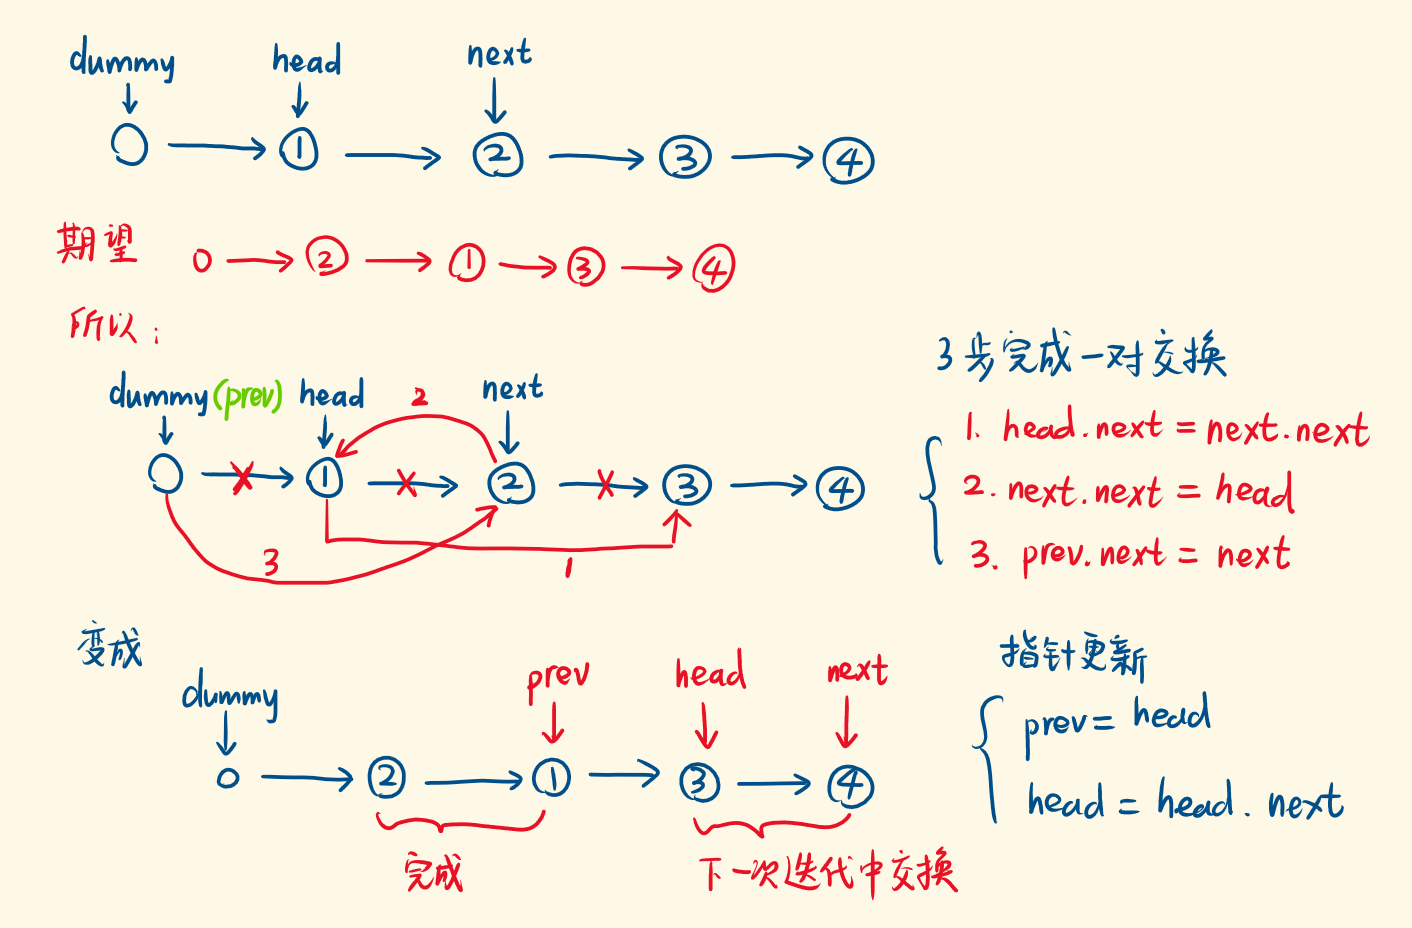 dummy head next
① ② ③ ④
期望 0 ② ① ③ ④
所以：
dummy(prev) head 2 next
① ② ③ ④
3 1
3步完成一对交换
1. head.next = next.next
2. next.next = head
3. prev.next = next
变成
dummy prev head next
0 ② ① ③ ④
完成 下一次迭代中交换
指针更新
prev = head
head = head.next